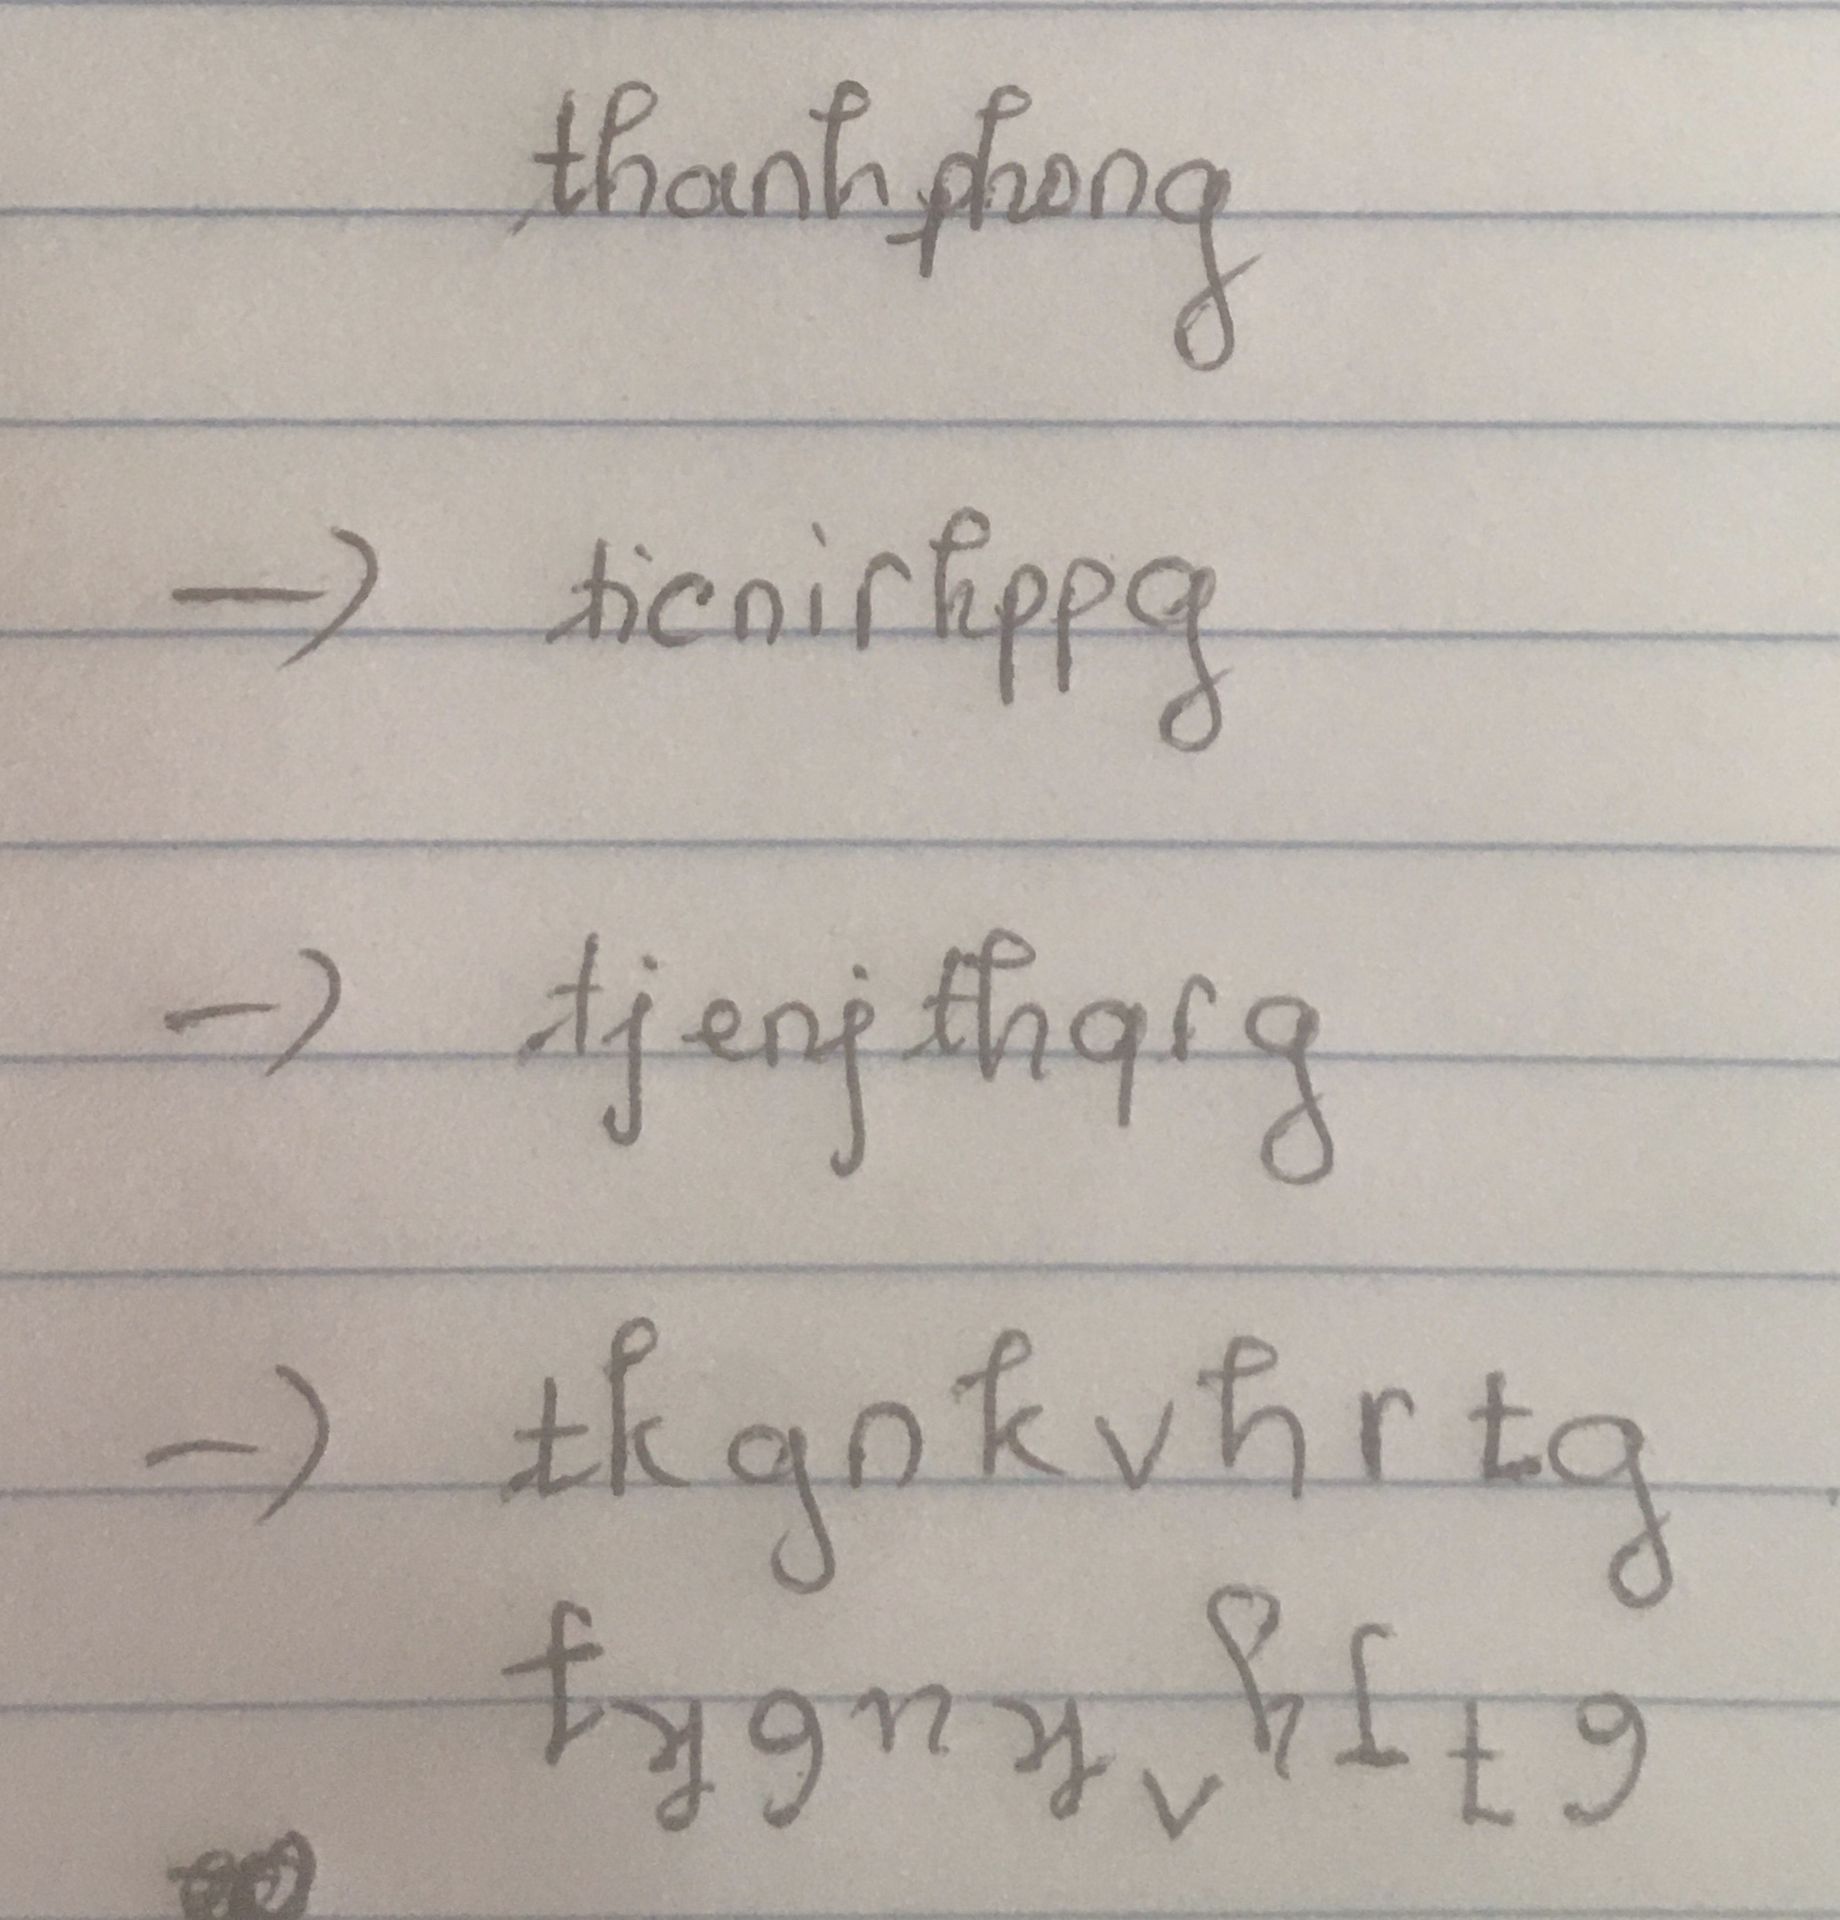 thanhphong
→ ticnirhppg
→ tjenjthqrg
→ tkgnkvhrtg